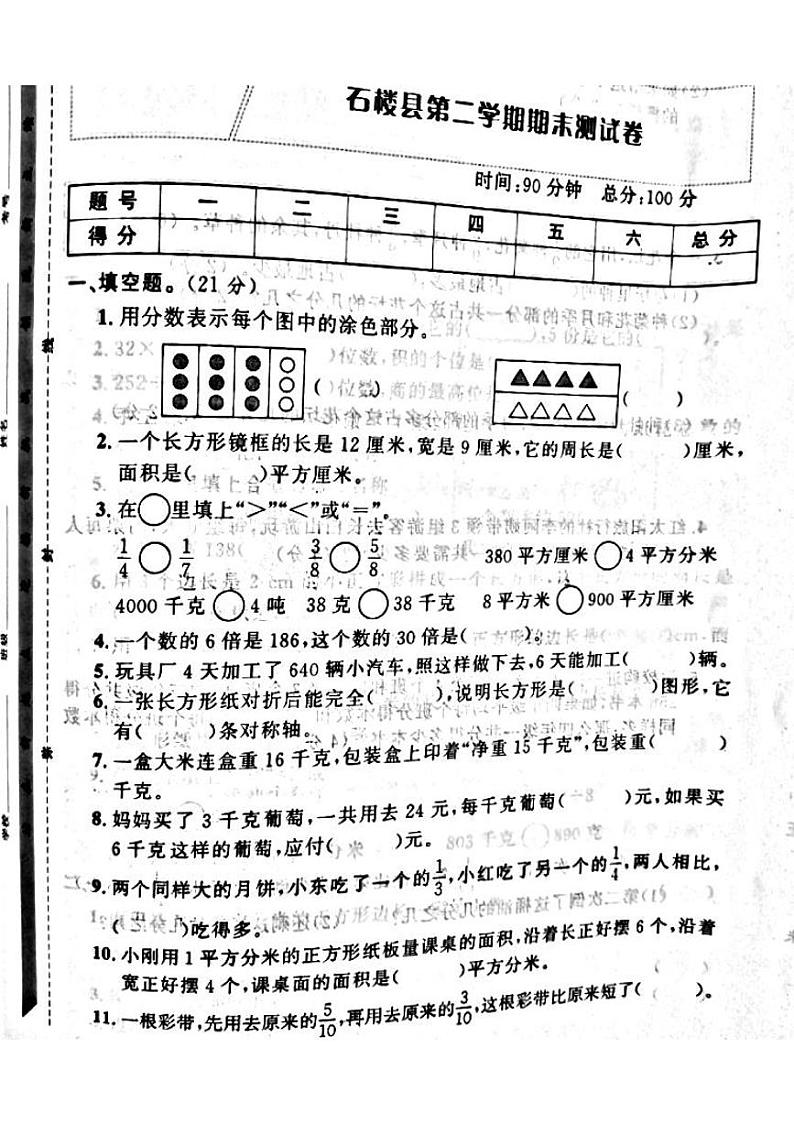 石楼县第二学期期末测试卷
时间:90分钟 总分:100分
题号 一 二 三 四 五 六 总分
得分
一、填空题。(21分)
1.用分数表示每个图中的涂色部分。
( ) ( )
2.一个长方形镜框的长是12厘米,宽是9厘米,它的周长是( )厘米,
面积是( )平方厘米。
3.在○里填上“>”“<”或“=”。
1/4○1/7 3/8○5/8 380平方厘米○4平方分米
4000千克○4吨 38克○38千克 8平方米○900平方厘米
4.一个数的6倍是186,这个数的30倍是( )。
5.玩具厂4天加工了640辆小汽车,照这样做下去,6天能加工( )辆。
6.一张长方形纸对折后能完全( ),说明长方形是( )图形,它
有( )条对称轴。
7.一盒大米连盒重16千克,包装盒上印着“净重15千克”,包装重( )
千克。
8.妈妈买了3千克葡萄,一共用去24元,每千克葡萄( )元,如果买
6千克这样的葡萄,应付( )元。
9.两个同样大的月饼,小东吃了一个的1/3,小红吃了另一个的1/4,两人相比,
( )吃得多。
10.小刚用1平方分米的正方形纸板量课桌的面积,沿着长正好摆6个,沿着
宽正好摆4个,课桌面的面积是( )平方分米。
11.一根彩带,先用去原来的5/10,再用去原来的3/10,这根彩带比原来短了( )。